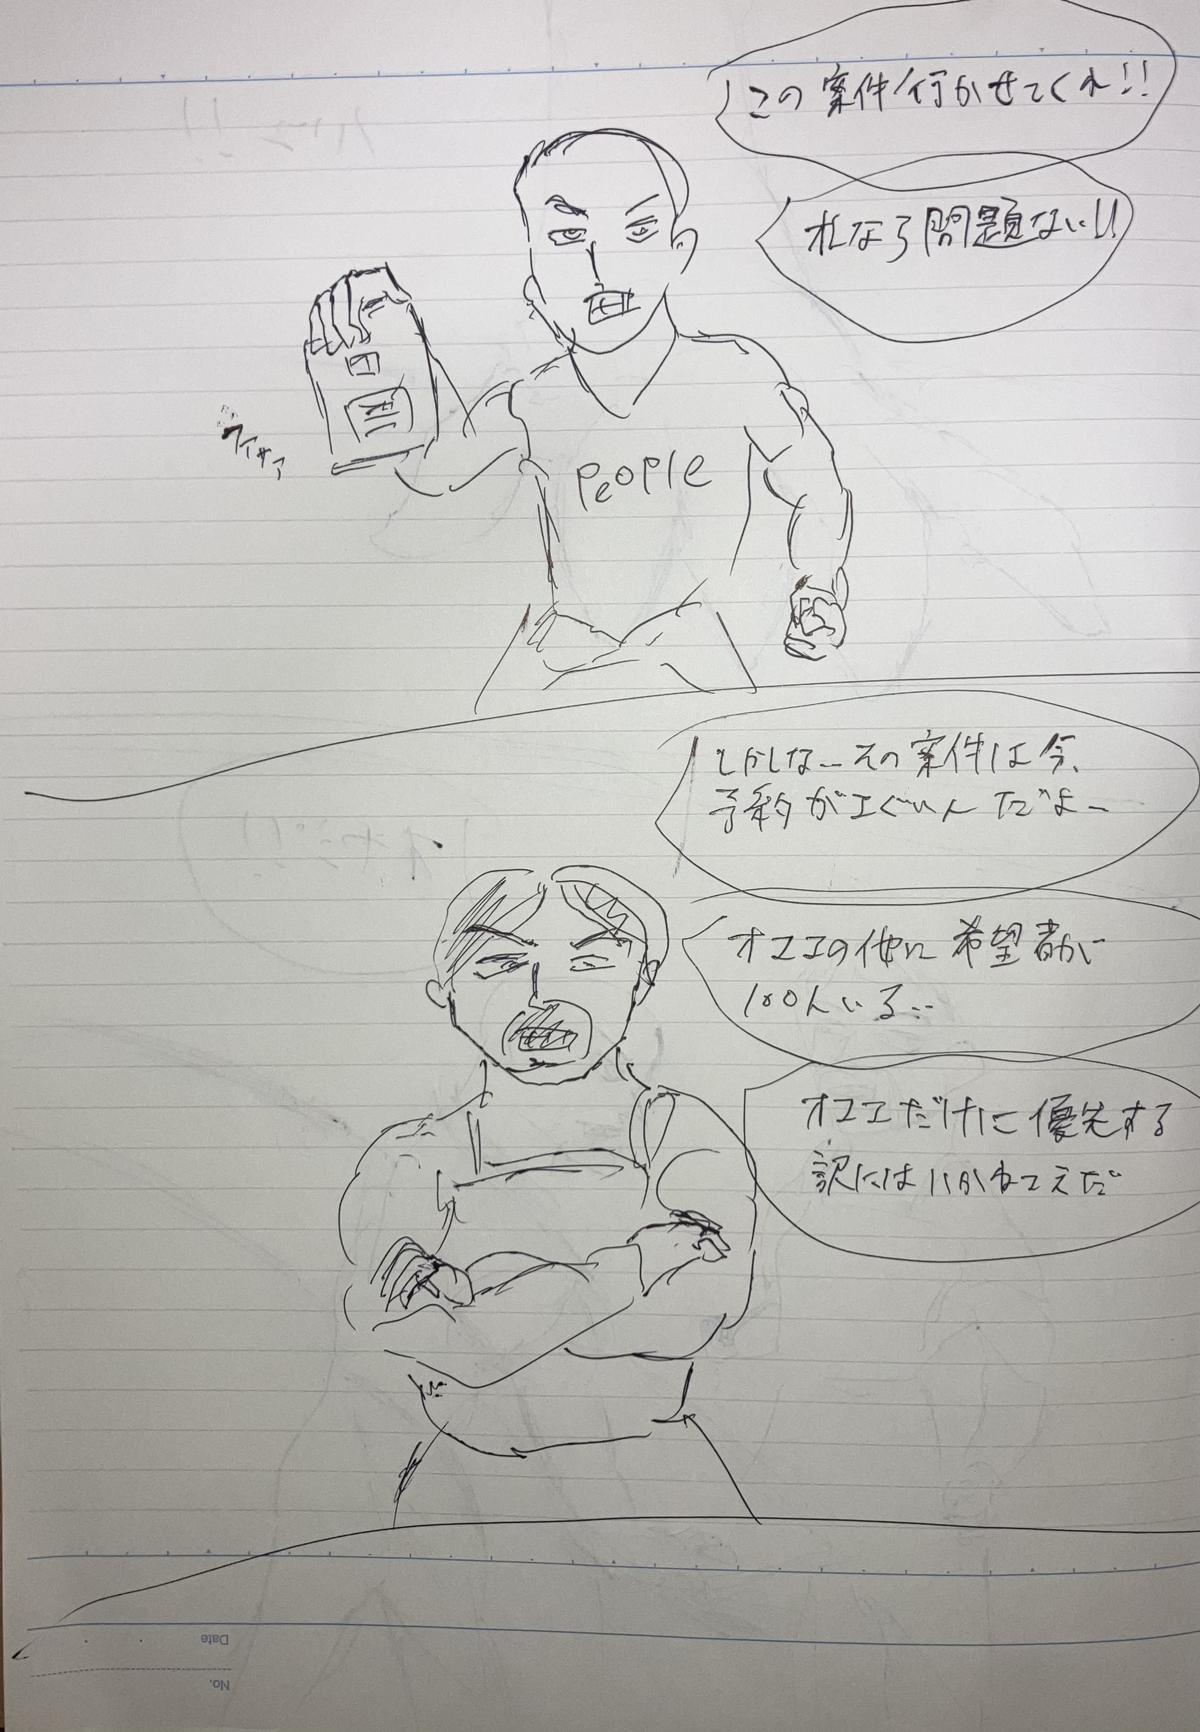 この案件行かせてくれ!!
オレなら問題ない!!
ファサァ
People
しかしな…その案件は今、
予約がエぐいんだよー
オマエの他に希望者が
100人いる…
オマエだけに優先する
訳にはいかねえだ
Date
No.